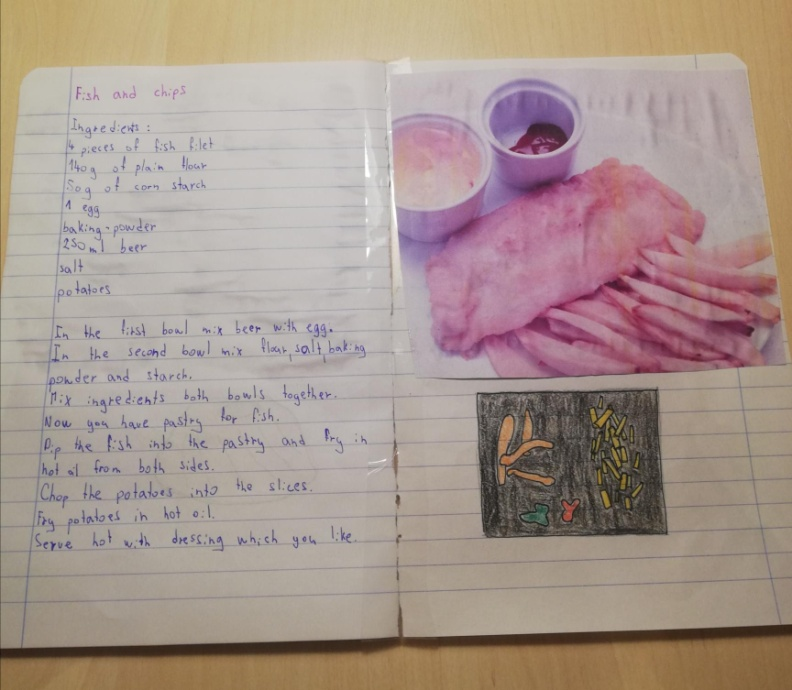 Fish and chips
Ingredients:
4 pieces of fish filet
140g of plain flour
50g of corn starch
1 egg
baking-powder
250 ml beer
salt
potatoes
In the first bowl mix beer with egg.
In the second bowl mix flour, salt, baking
powder and starch.
Mix ingredients both bowls together.
Now you have pastry for fish.
Dip the fish into the pastry and fry in
hot oil from both sides.
Chop the potatoes into the slices.
Fry potatoes in hot oil.
Serve hot with dressing which you like.